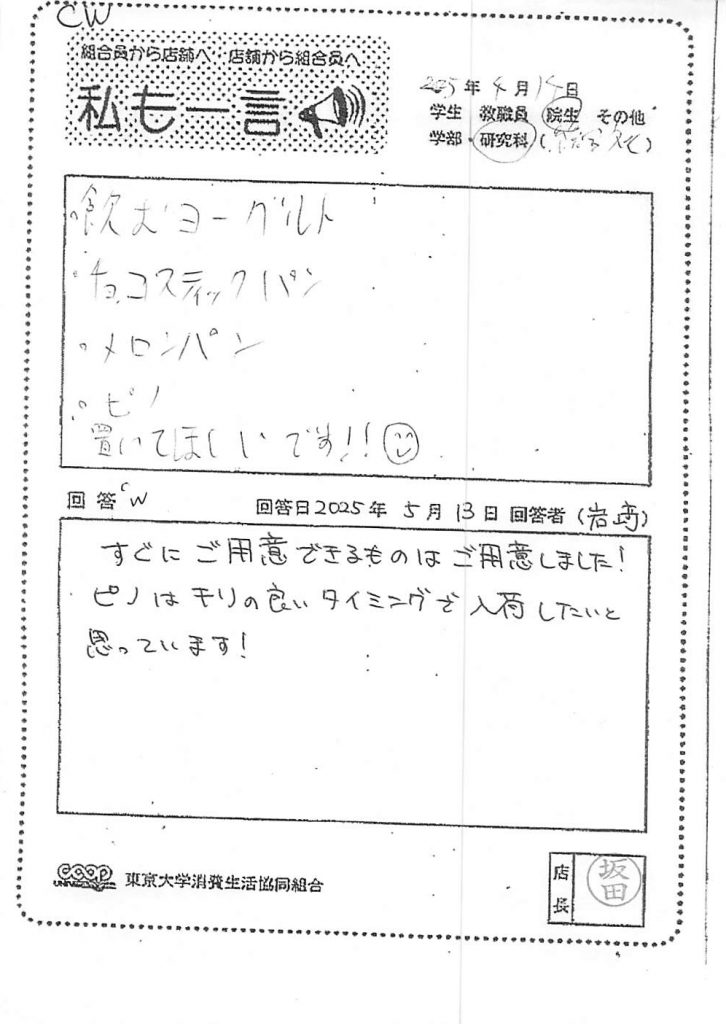 CW
組合員から店舗へ・店舗から組合員へ
私も一言
2025年4月14日
学生 教職員 院生 その他
学部・研究科()
・飲むヨーグルト
・チョコスティックパン
・メロンパン
・ピノ
置いてほしいです!!
回答 CW 回答日2025年 5月 13日 回答者(岩崎)
すぐにご用意できるものはご用意しました!
ピノはキリの良いタイミングで入荷したいと
思っています!
coop 東京大学消費生活協同組合
店長
坂田